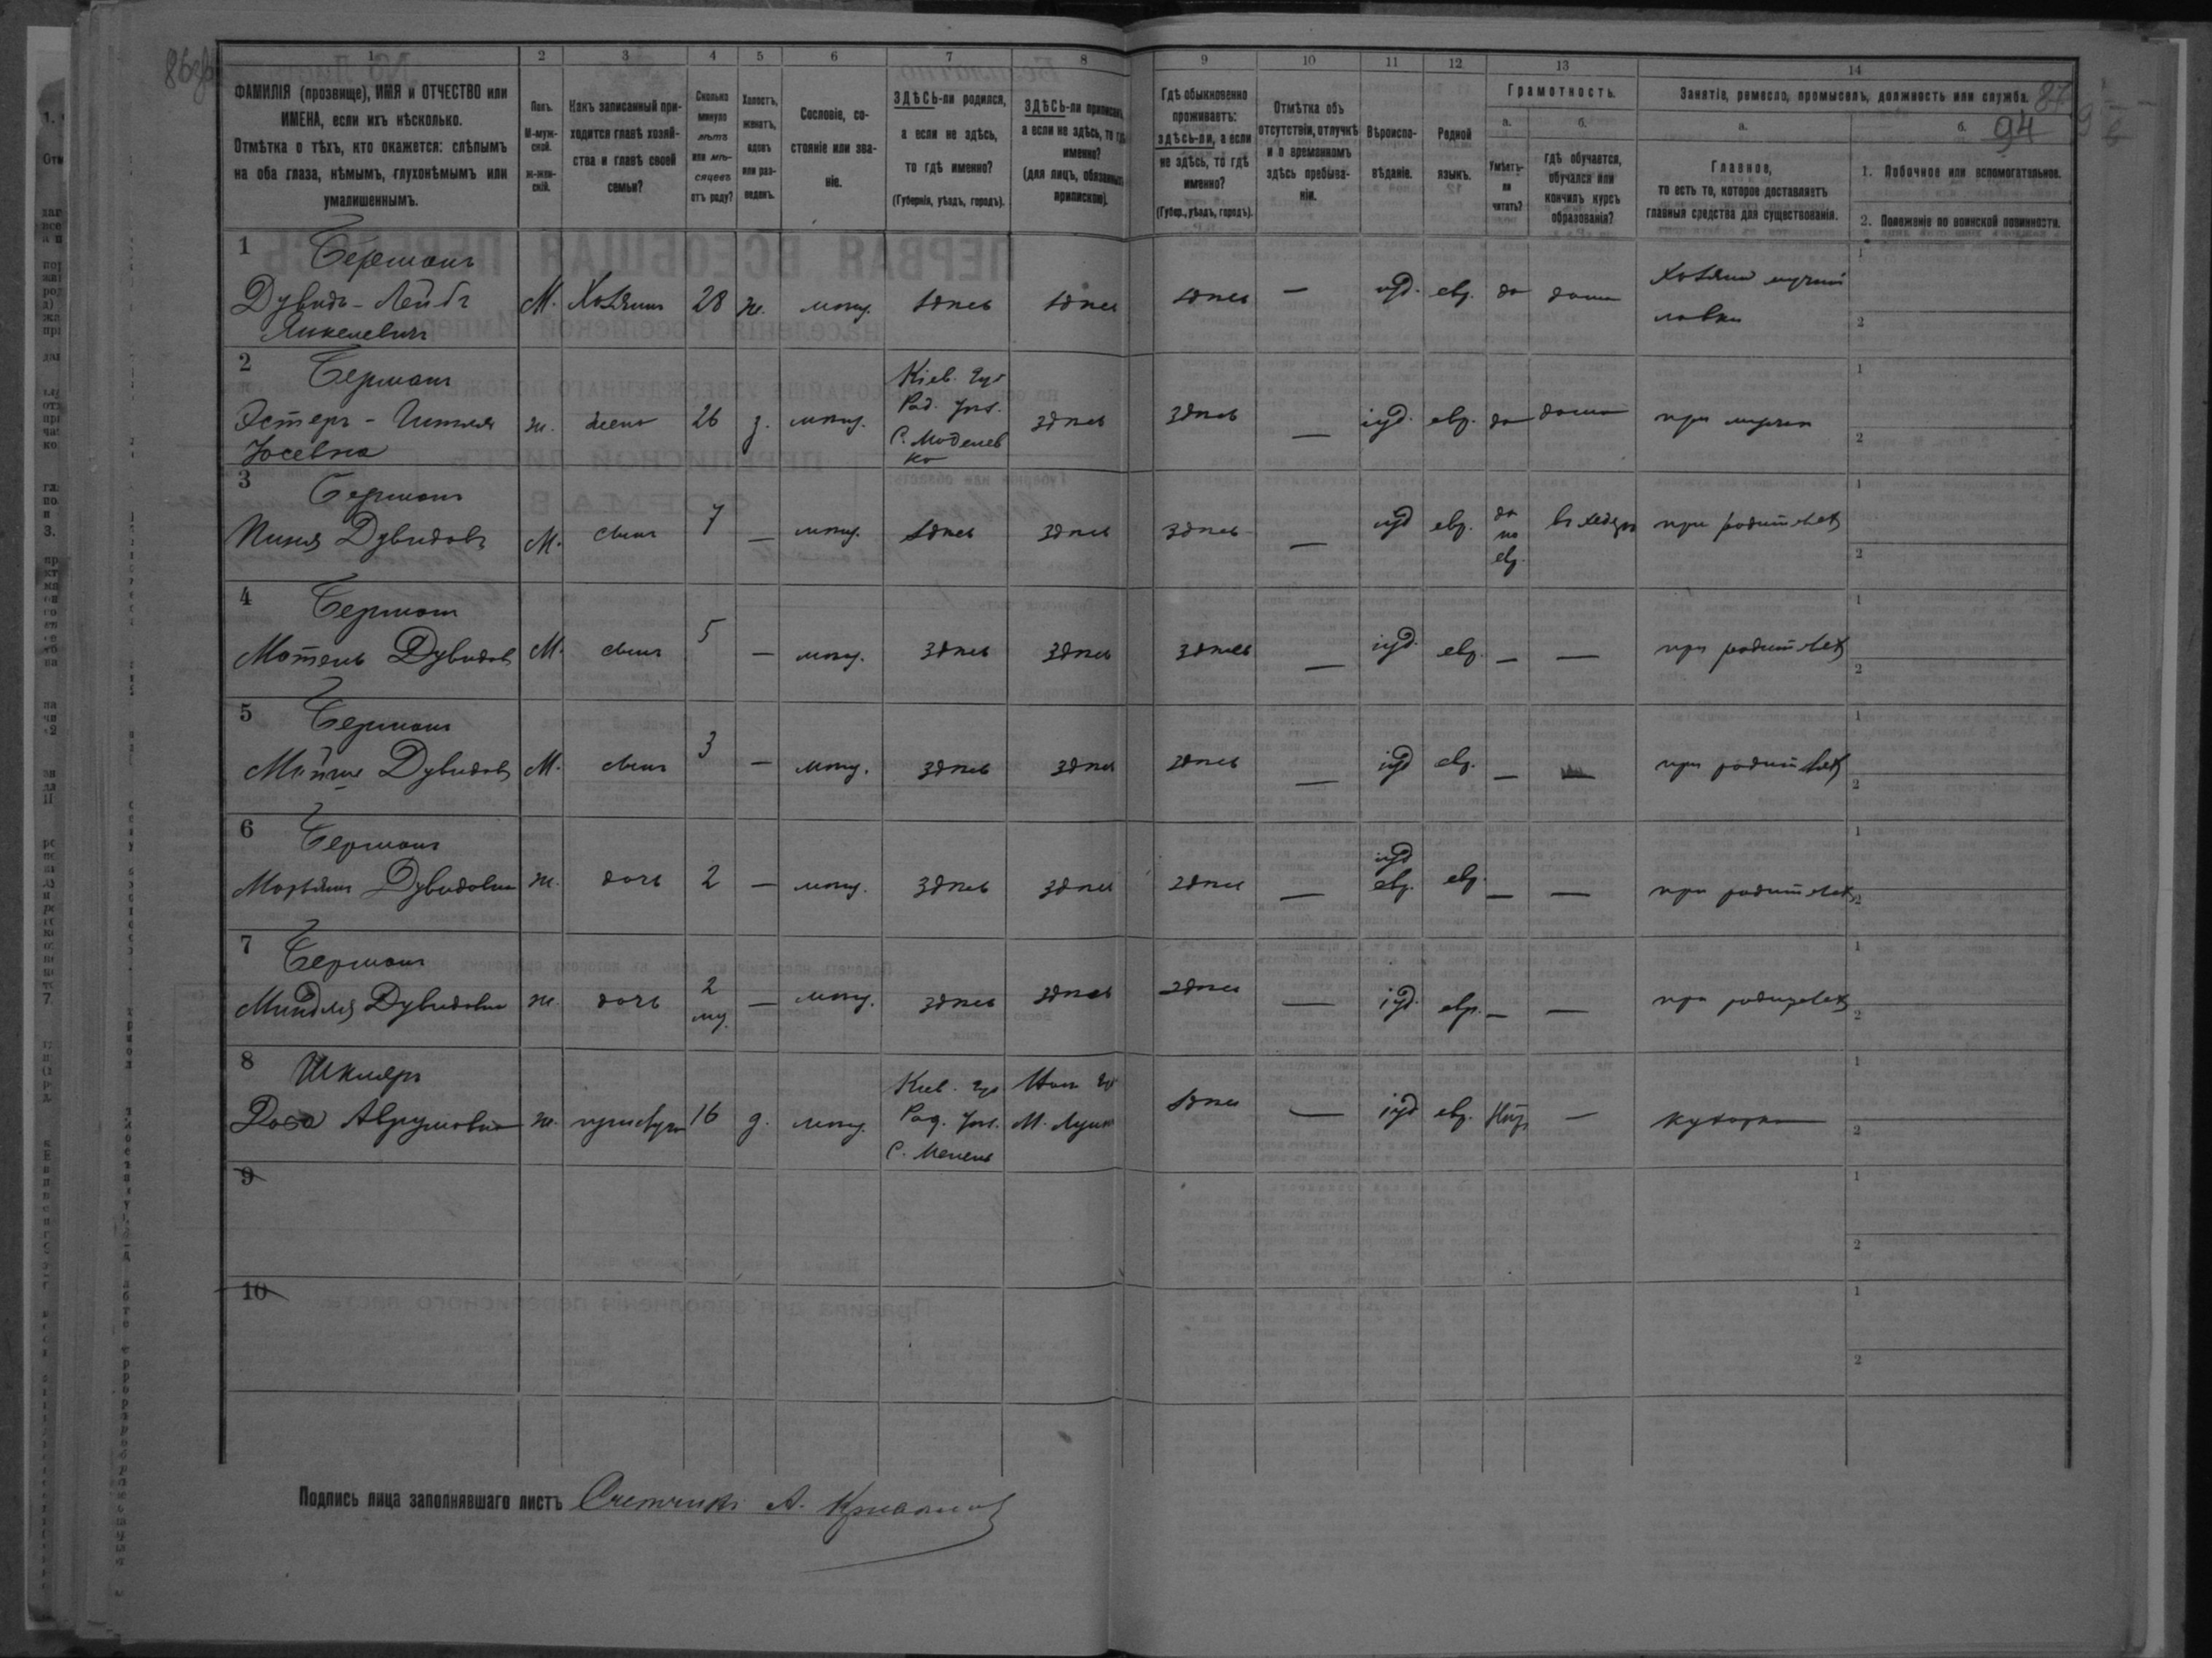 86об
1 2 3 4 5 6 7 8 9 10 11 12 13 14
ФАМИЛІЯ (прозвище), ИМЯ и ОТЧЕСТВО или ИМЕНА, если ихъ нѣсколько.
Отмѣтка о тѣхъ, кто окажется: слѣпымъ на оба глаза, нѣмымъ, глухонѣмымъ или умалишеннымъ.
Полъ.
М-мужской.
ж-женскій.
Какъ записанный приходится главѣ хозяйства и главѣ своей семьи?
Сколько минуло лѣтъ или мѣсяцевъ отъ роду?
Холостъ, женатъ, вдовъ или разведенъ.
Сословіе, состояніе или званіе.
ЗДѢСЬ-ли родился, а если не здѣсь, то гдѣ именно?
(Губернія, уѣздъ, городъ).
ЗДѢСЬ-ли приписанъ, а если не здѣсь, то гдѣ именно?
(для лицъ, обязанныхъ припискою).
Гдѣ обыкновенно проживаетъ: здѣсь-ли, а если не здѣсь, то гдѣ именно?
(Губер., уѣздъ, городъ).
Отмѣтка объ отсутствіи, отлучкѣ и о временномъ здѣсь пребываніи.
Вѣроисповѣданіе.
Родной языкъ.
Грамотность.
а.
Умѣетъ-ли читать?
б.
Гдѣ обучается, обучался или кончилъ курсъ образованія?
Занятіе, ремесло, промыселъ, должность или служба.
87
94
а.
Главное,
то есть то, которое доставляетъ главныя средства для существованія.
б.
1. Побочное или вспомогательное.
2. Положеніе по воинской повинности.
1 Берманъ
Дувидъ-Лейбъ
Янкелевичъ
М. Хозяинъ 28 ж. мѣщ. здѣсь здѣсь здѣсь — іуд. евр. да дома Хозяинъ мучной
лавки
2 Берманъ
Эстеръ-Гитля
Іосевна
ж. жена 26 з. мѣщ. Кіев. Губ
Рад. Уѣз.
С. Моделев
ка
здѣсь здѣсь — іуд. евр. да дома при мужѣ
3 Берманъ
Пиня Дувидовъ
М. сынъ 7 — мѣщ. здѣсь здѣсь здѣсь — іуд евр. да
по
евр.
въ хедерѣ при родителяхъ
4 Берманъ
Мотель Дувидов
М. сынъ 5 — мѣщ. здѣсь здѣсь здѣсь — іуд. евр. — — при родителяхъ
5 Берманъ
Мойше Дувидовъ
М. сынъ 3 — мѣщ. здѣсь здѣсь здѣсь — іуд евр. — — при родителяхъ
6 Берманъ
Дувидовна
ж. дочь 2 — мѣщ. здѣсь здѣсь здѣсь — іуд
евр.
евр. — — при родителяхъ
7 Берманъ
Миндля Дувидовна
ж. дочь 2
мц.
— мѣщ. здѣсь здѣсь здѣсь — іуд. евр. — — при родителяхъ
8 Шкляръ
Авrумовна
ж. прислуга 16 д. мѣщ. Кіев. Губ
Рад. Уѣз.
здѣсь — іуд евр. нѣтъ — кухарка
9
10
Подпись лица заполнявшаго листъ Счетчикъ А.